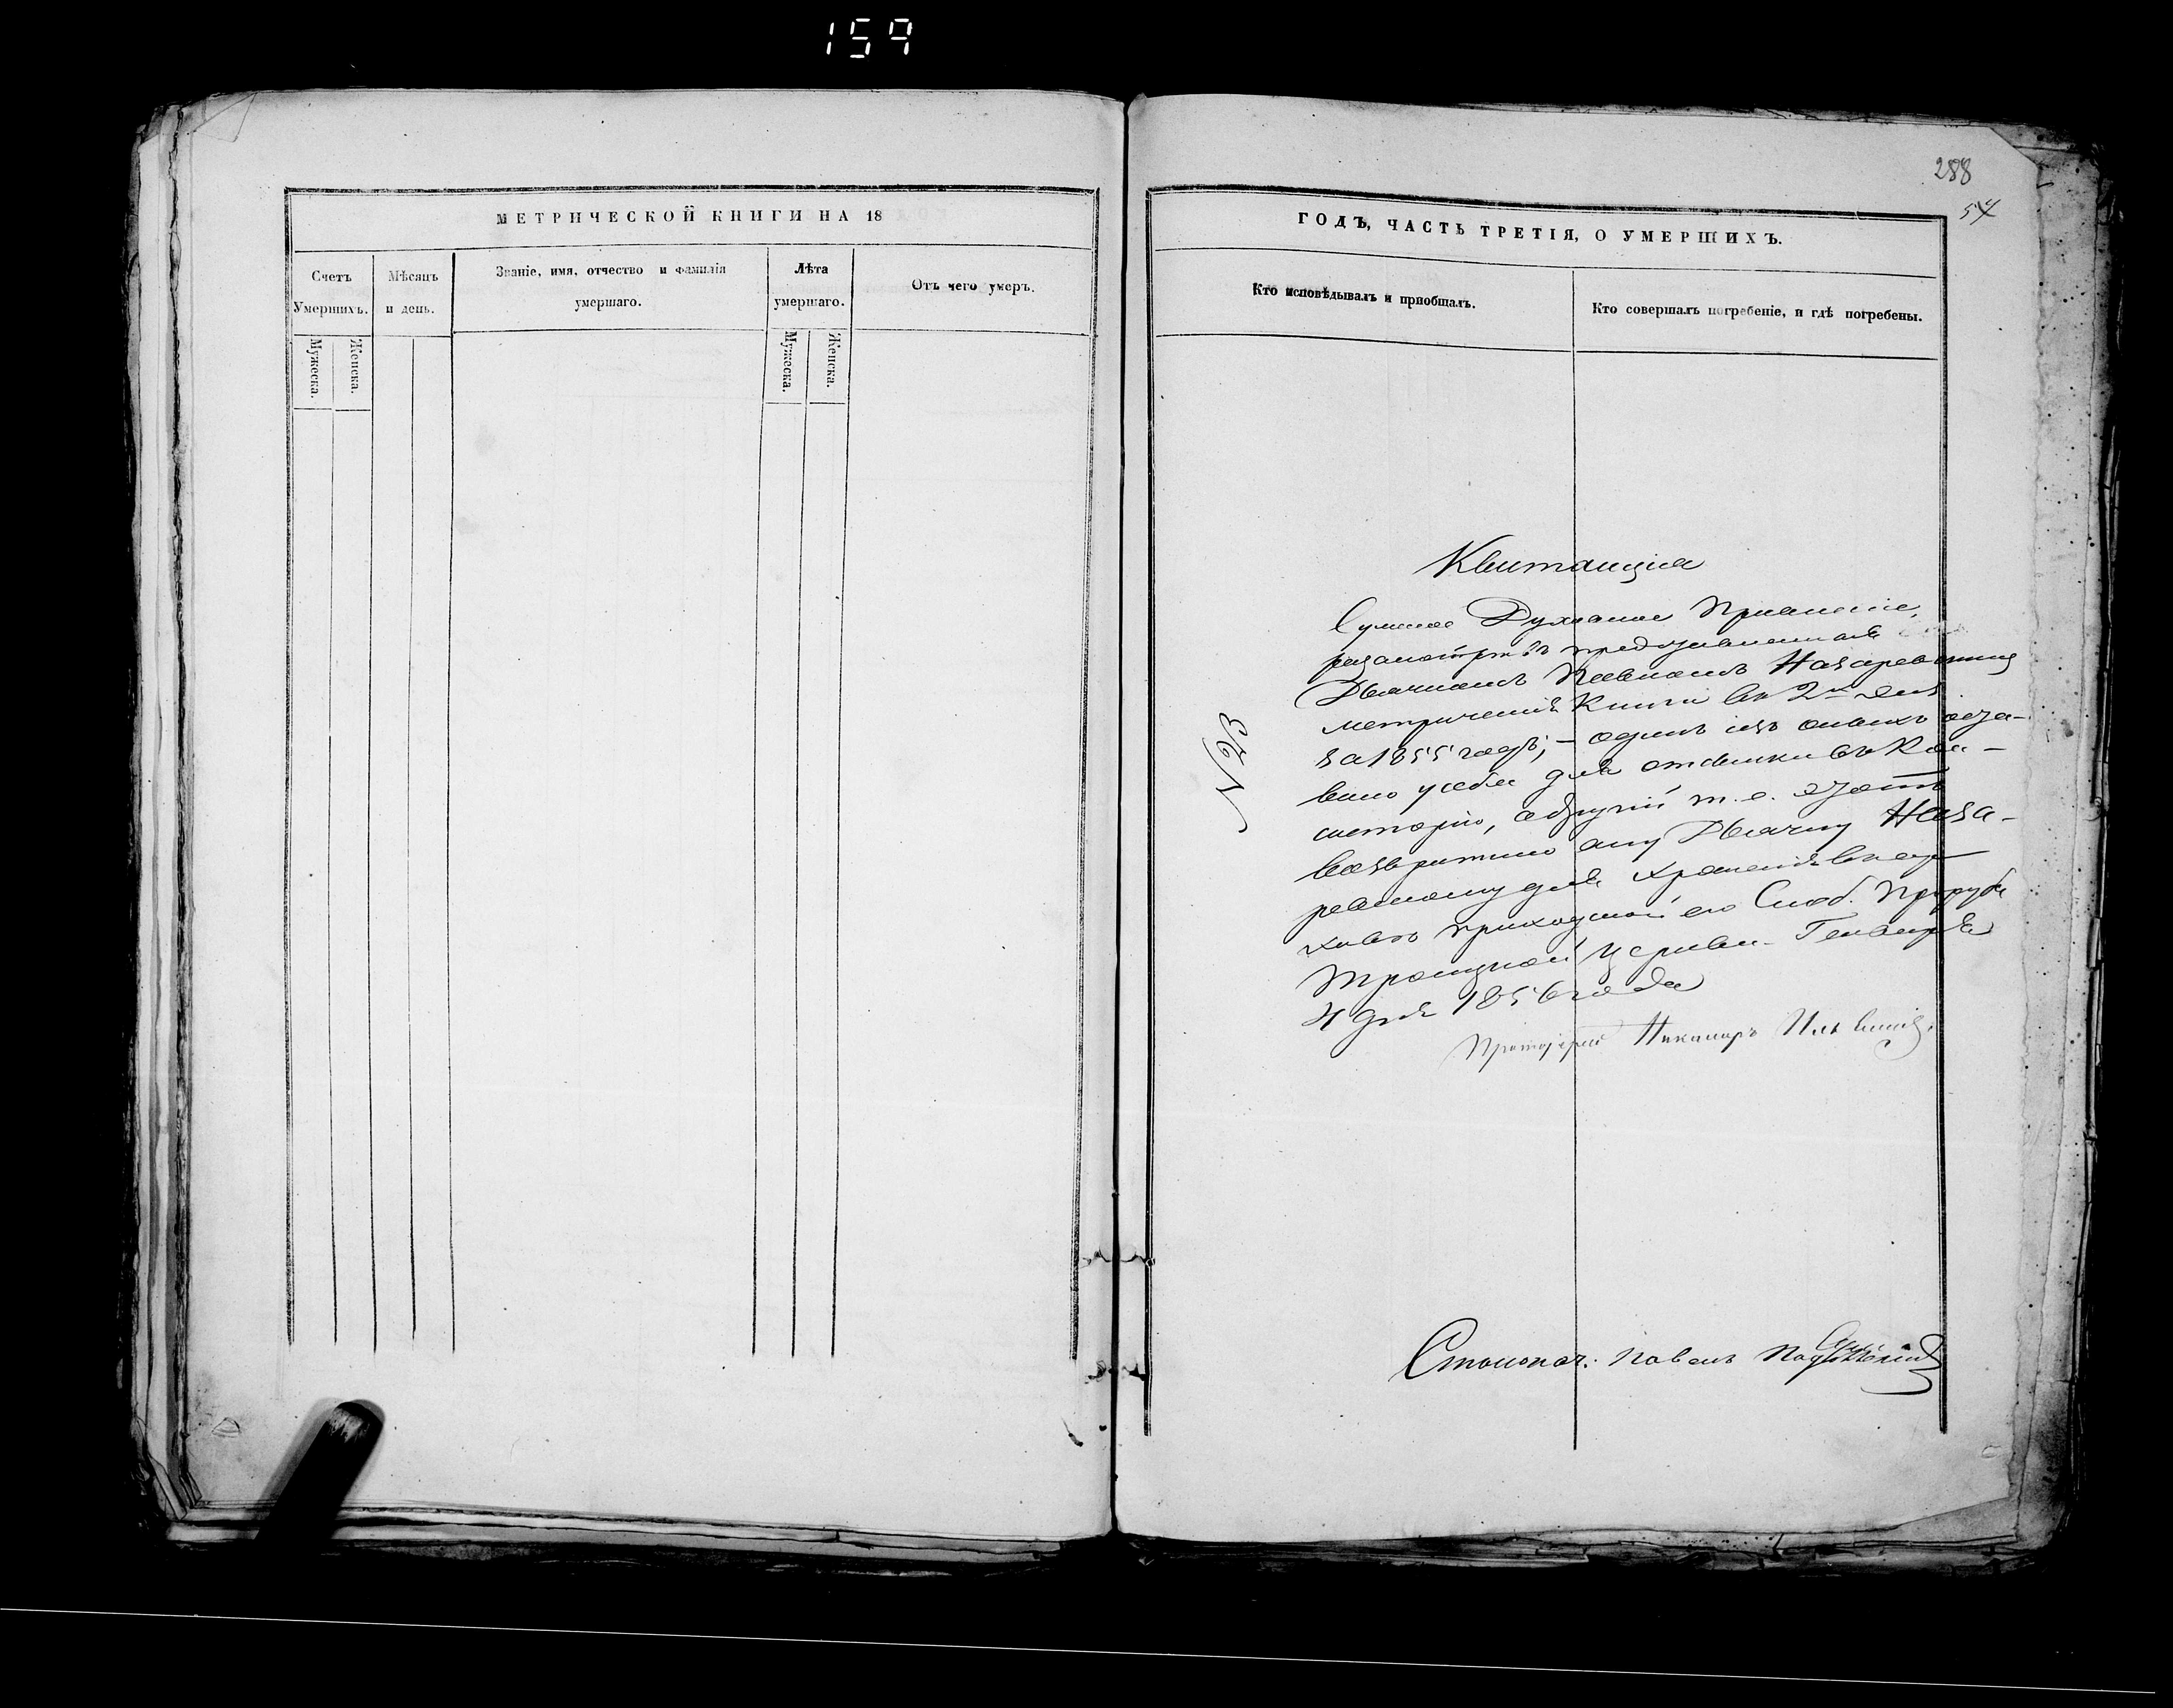 159
МЕТРИЧЕСКОЙ КНИГИ НА 18
Счетъ
Умершихъ.
Мужеска.
Женска.
Мѣсяцъ
и день.
Званіе, имя, отчество и фамилія
умершаго.
Лѣта
умершаго.
Мужеска.
Женска.
Отъ чего умеръ.
288
54
ГОДЪ, ЧАСТЬ ТРЕТІЯ, О УМЕРШИХЪ.
Кто исповѣдывалъ и пріобщалъ.
Кто совершалъ погребеніе, и гдѣ погребены.
Квитанція
Сумское Духовное Правленіе,
разсмотрѣвъ представленныя
Дьячкомъ Павломъ Назаревскимъ
метрическія Книги въ 2хъ
за 1855 годъ; – одинъ изъ оныхъ оста-
вило у себя для отсылки въ Кон-
систорію, а другій т. е. этотъ
возвратило ему Дьячку Наза-
ревскому для храненія въ ар-
хивѣ приходской его Слоб.
Троицкой церкви. Генваря
4 дня 1856 года
№ 3
Протоіерей Никаноръ Ильинскій.
Столонач: Павелъ